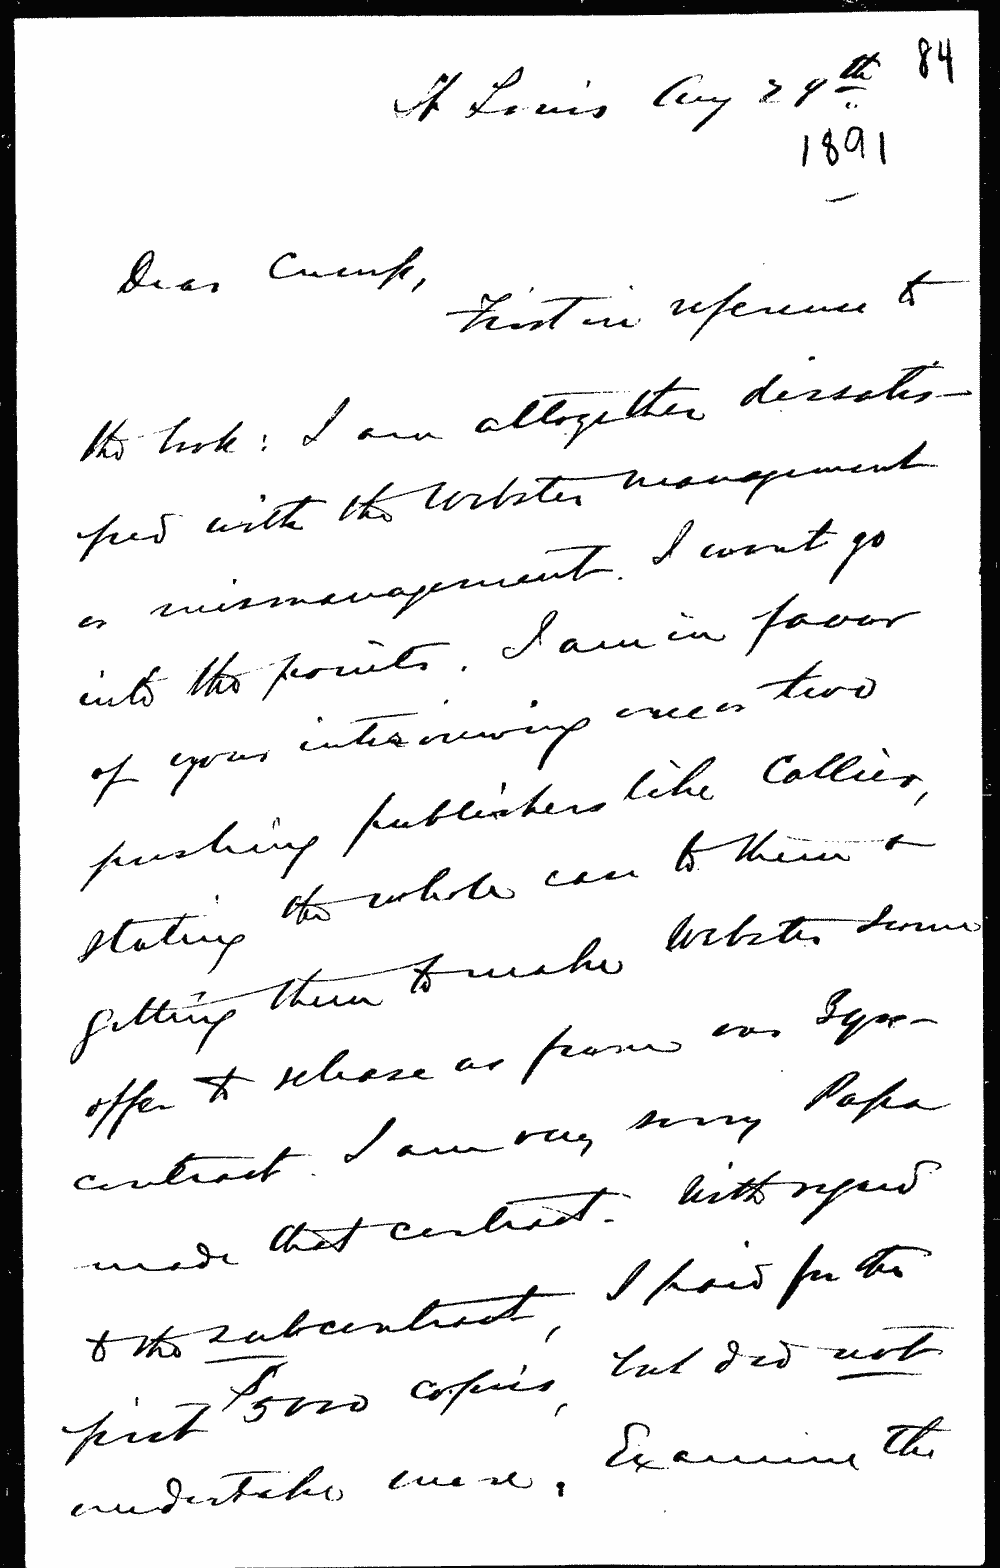 84
St Louis Aug 29th
1891
Dear Crump,
First in reference to
the book: I am altogether dissatis-
fied with the Webster management
or mismanagement. I won't go
into the points. I am in favor
of your interviewing one or two
pushing publishers like Collier,
stating the whole case to them &
getting them to make Webster some
offer to release us from our 3 yrs-
contract. I am very sorry Papa
made that contract. With regard
to the subcontract, I paid for the
first 5000 copies, but did not
undertake more. Examine the